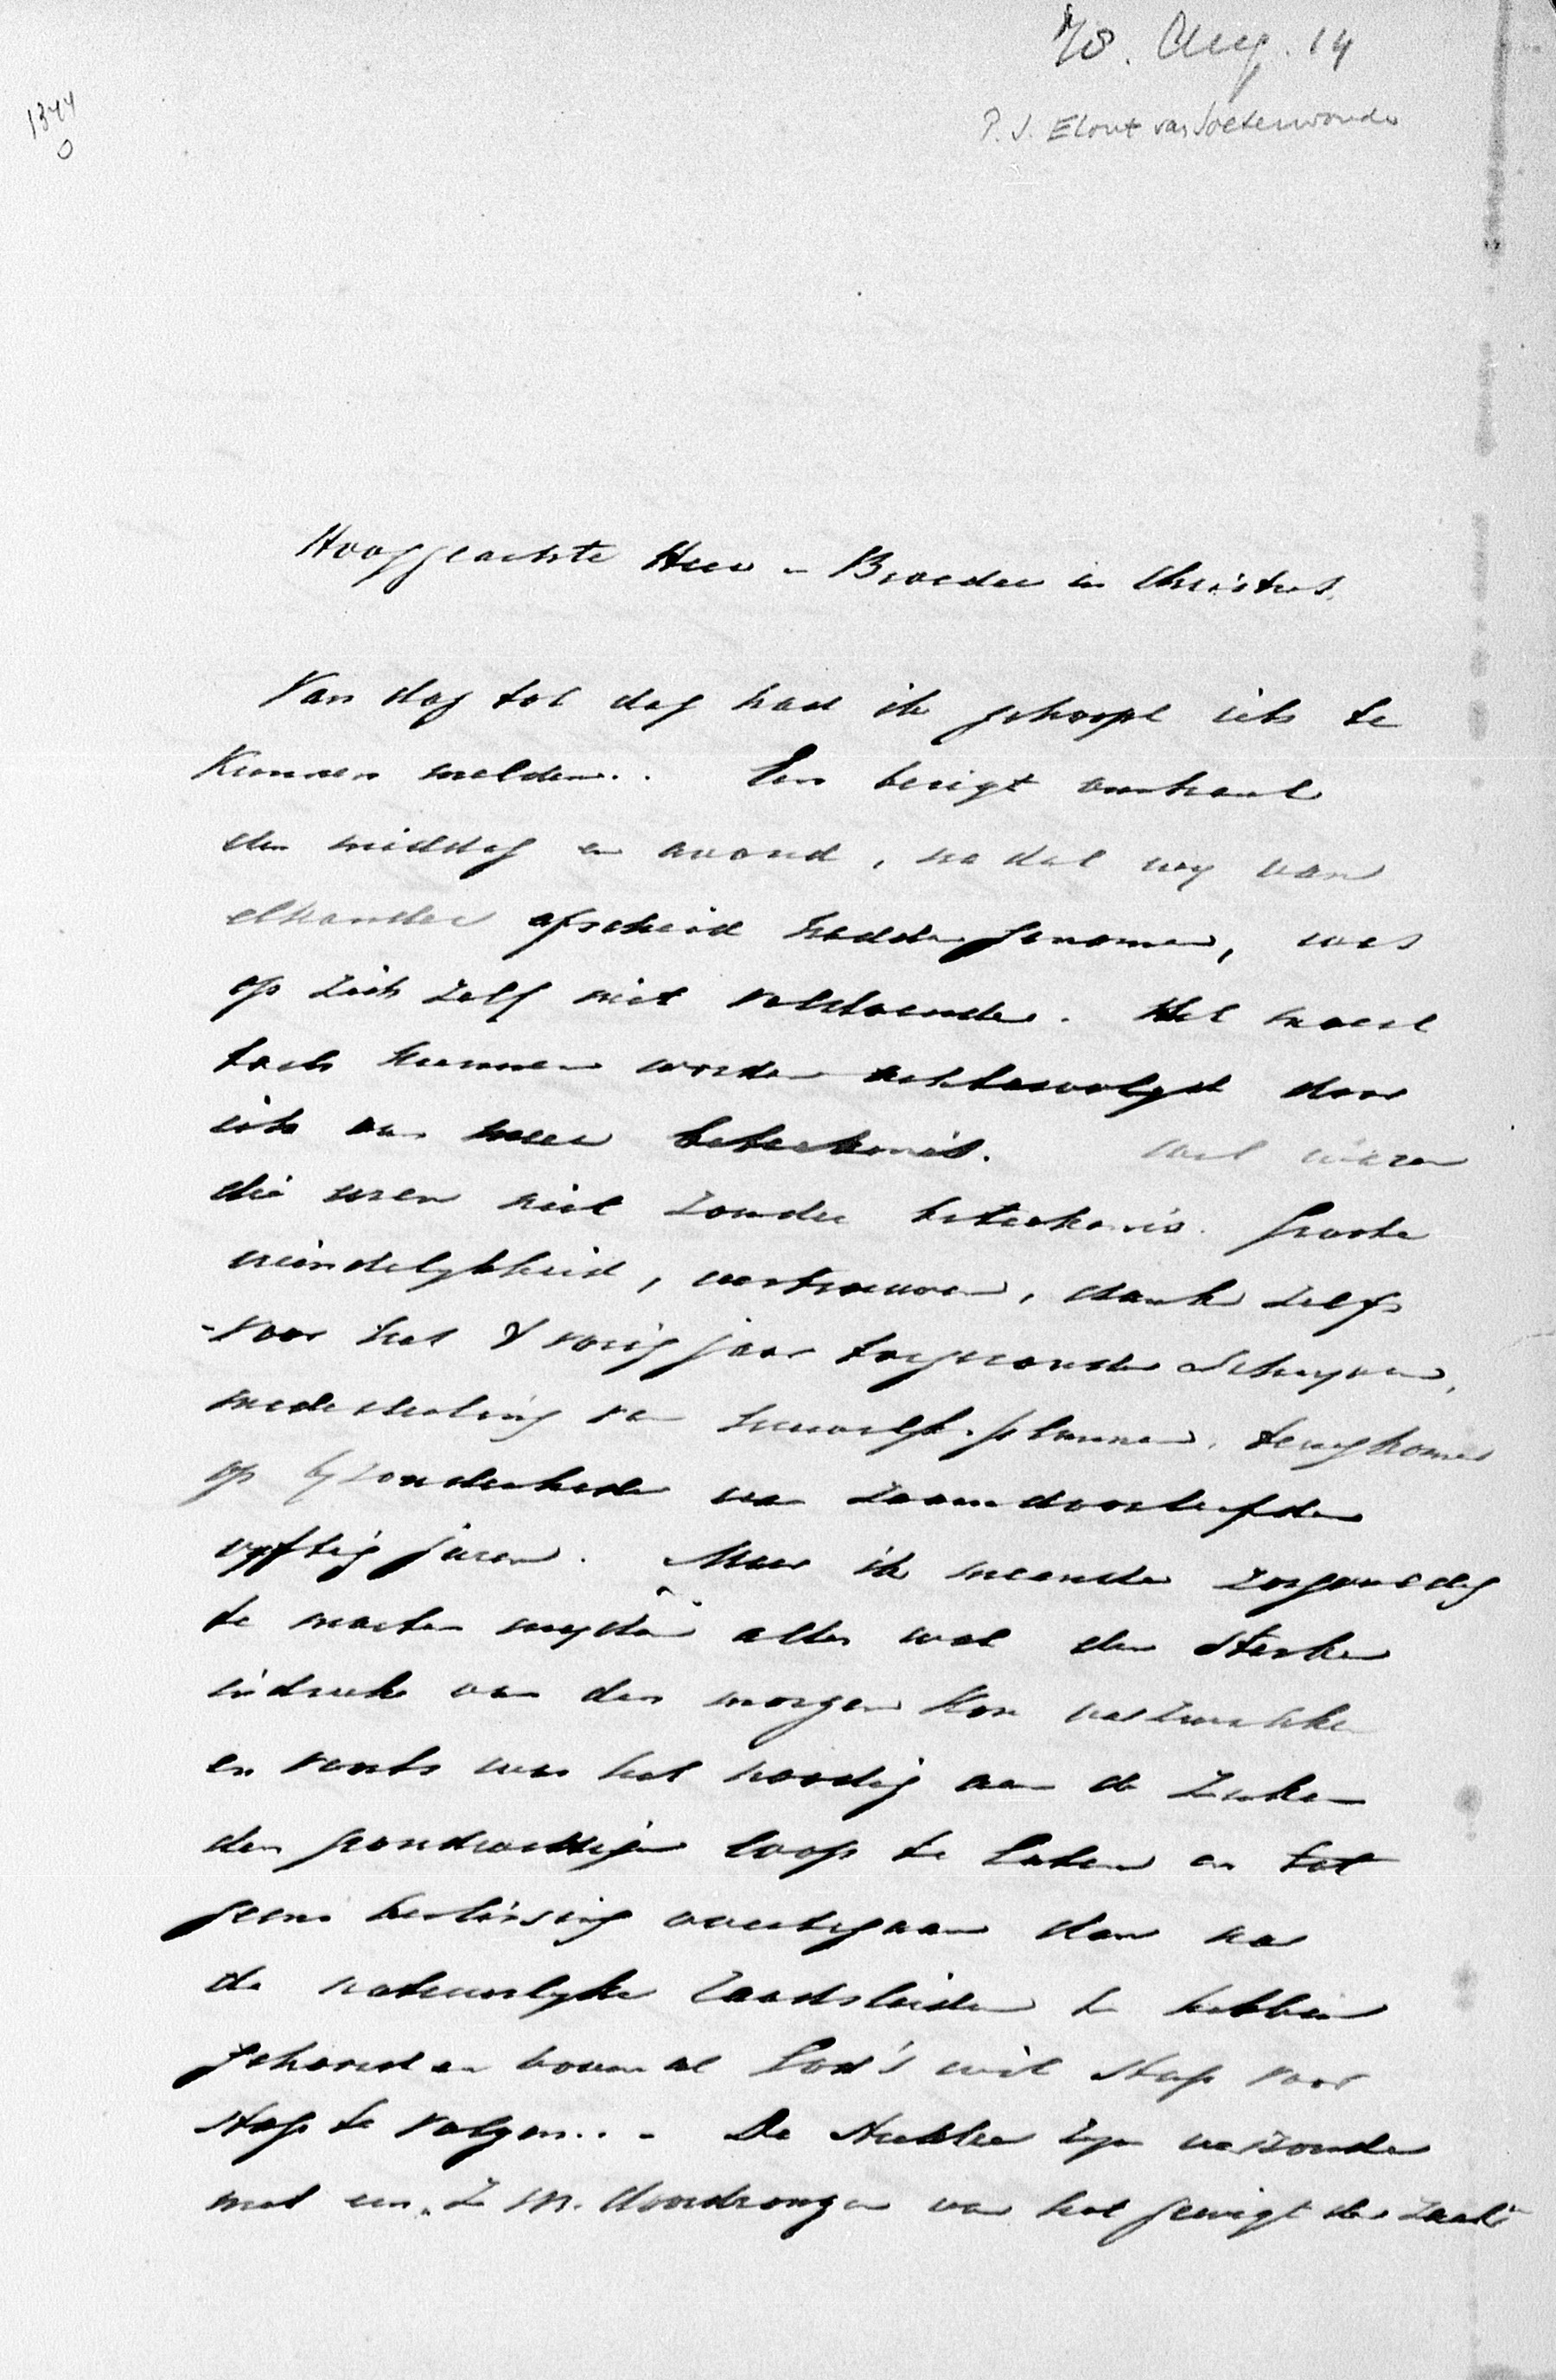 78. Aug. 14
P. J. Elout van Soeterwoude
1344
0
Hooggeachte Heer en Broeder in Christus.
Van dag tot dag had ik gehoopt iets te
Kunnen melden. Een berigt omtrent
den middag en avond, nadat wy van
elkander afscheid hadden genomen, was
op zich zelf niet voldoende. Het moest
toch kunnen worden achtervolgd door
iets van meer beteekenis. Wel waren
die uren niet zonder beteekenis. Groote
vriendelykheid, vertrouwen, dank zelfs
voor het 't vorig jaar toegezonden schryven,
mededeeling van huwelyksplannen, terugkomen
op byzonderheden van zaamdoorleefden
vyftig jaren. Maar ik meende zorgvuldig
te moeten myden alles wat den sterken
indruk van den morgen kon verzwakken
en voorts was het noodig aan de zaken
den loop te laten en tot
geene beslissing overtegaan dan na
de natuurlyke raadslieden te hebben
gehoord en bovenal God's wil stap voor
stap te volgen. - De stukken zyn verzonden
met een Z. M. doordrongen van het gewigt der zaak